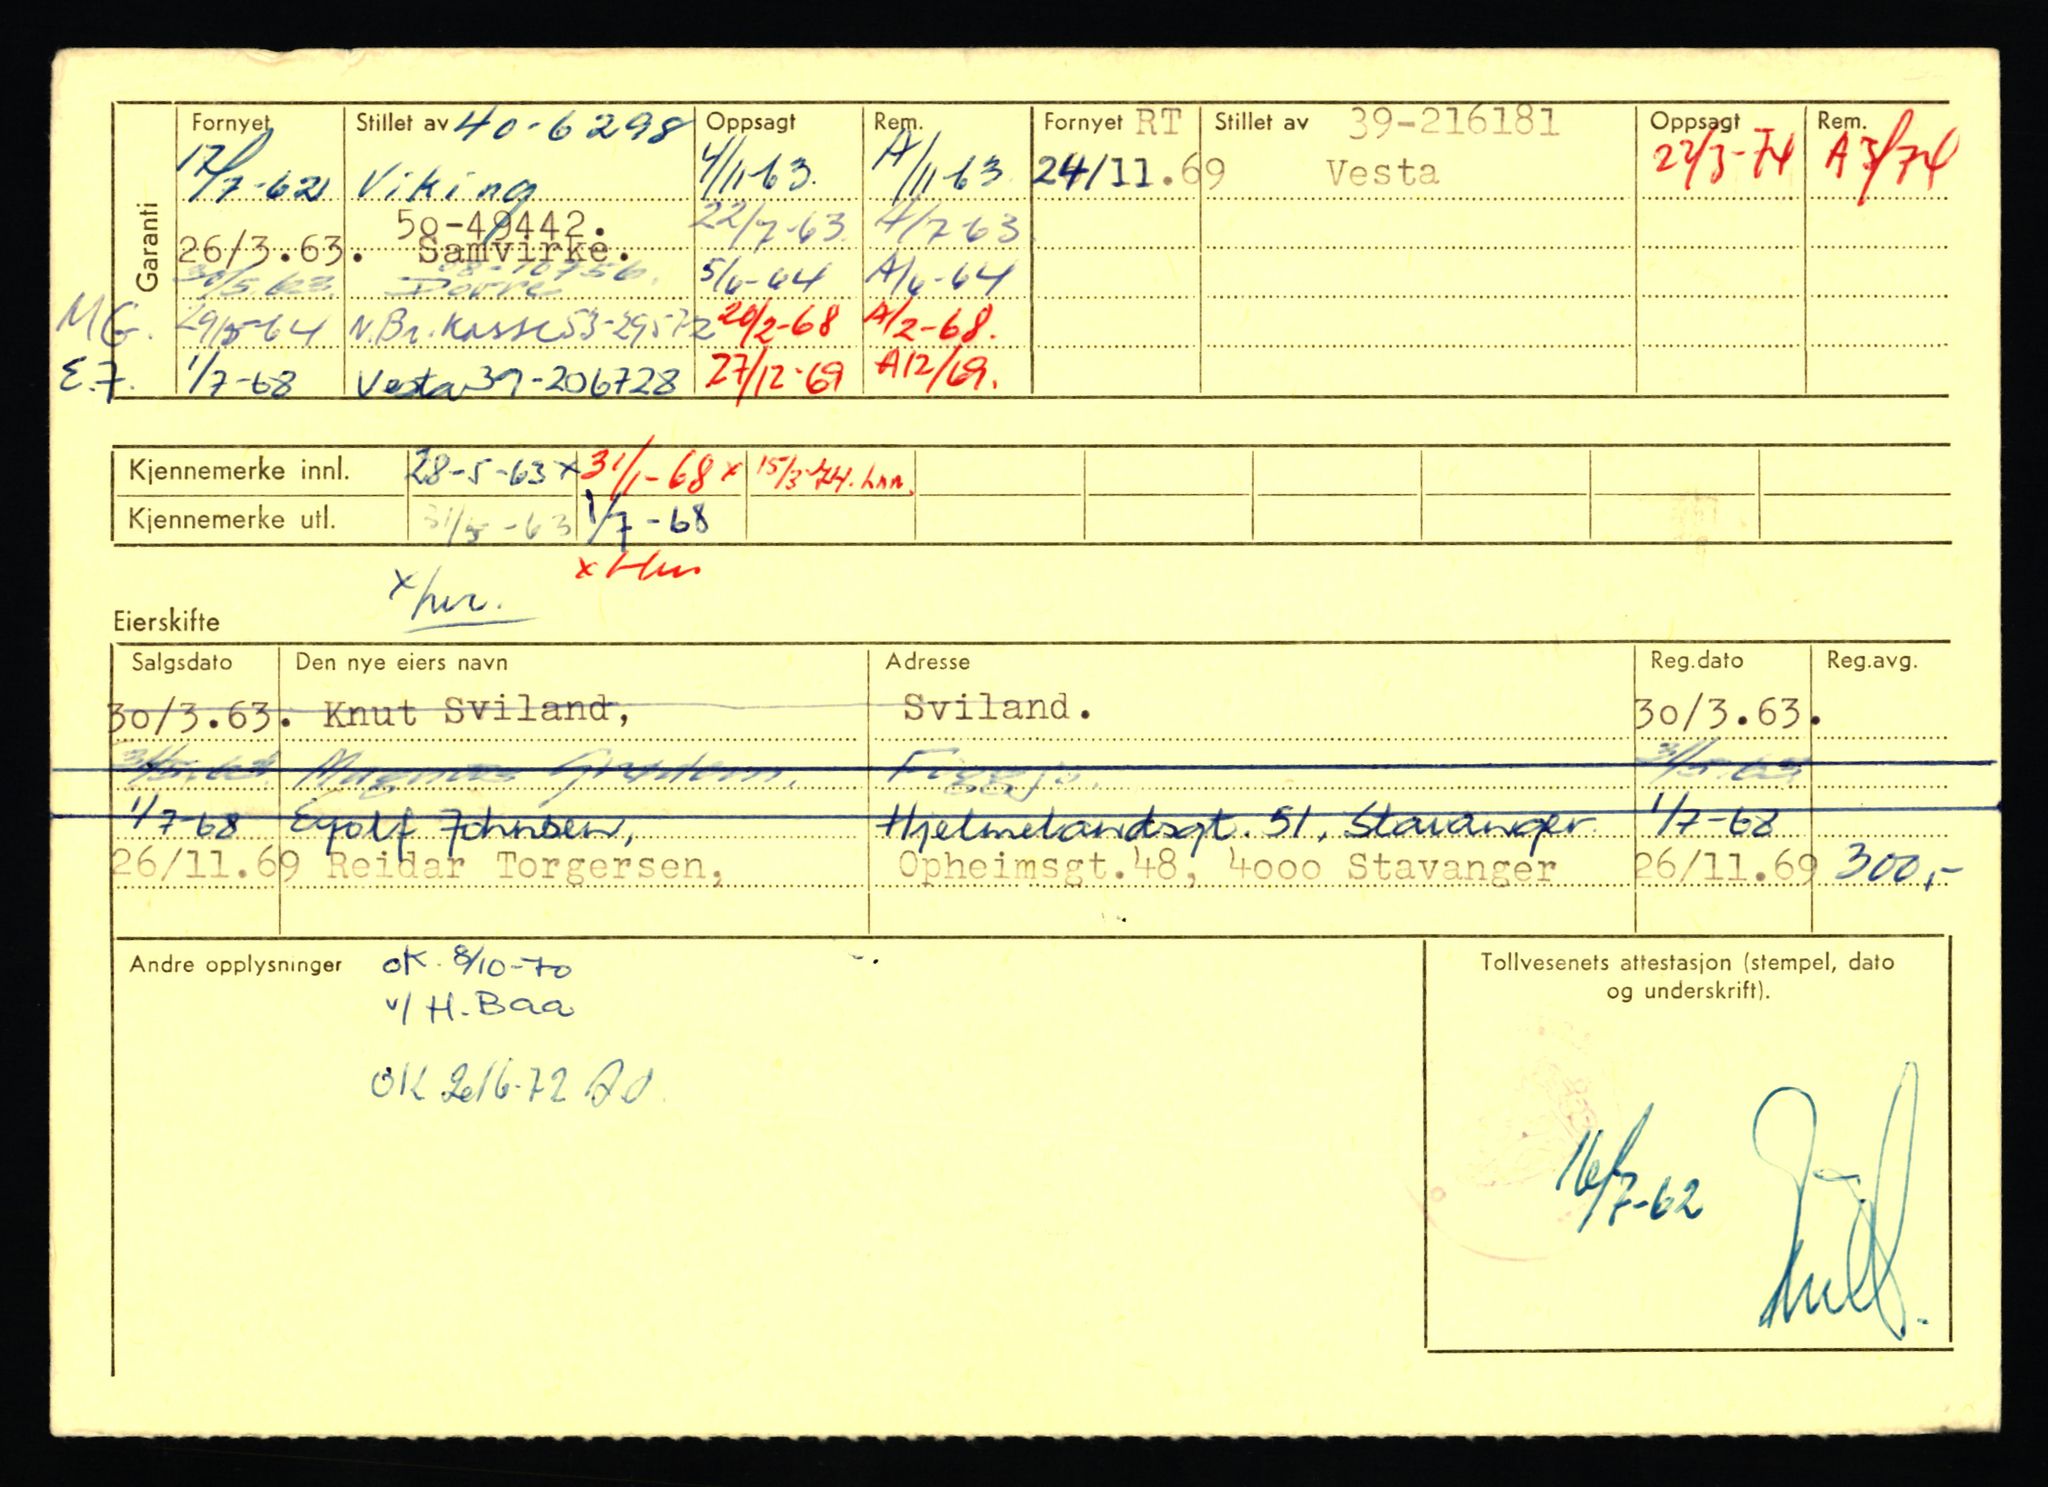 Garanti
Fornyet Stillet av 40-6298 Oppsagt Rem. Fornyet RT Stillet av 39-216181 Oppsagt Rem.
17/7-62 Viking 4/11-63. A/11-63 24/11.69 Vesta 22/3-74 A 3/74
50-49442.
26/3.63. Samvirke. 22/7-63. A/7-63
30/5.63. 5/6-64 A/6-64
MG. N.Br.kasse 53-29572 20/2-68 A/2-68.
E.J. 1/7-68 Vesta 39-206728 27/12-69 A12/69.
Kjennemerke innl. 28-5-63 x 31/1-68 x 15/3-74.
Kjennemerke utl. 31/5-63 1/7-68
Eierskifte
Salgsdato Den nye eiers navn Adresse Reg.dato Reg.avg.
30/3.63. Knut Sviland, Sviland. 30/3.63.
31/5.63 Magnus 31/5.63
1/7-68 Eyolf Johnsen, Hjelmelandsgt. 51, Stavanger 1/7-68
26/11.69 Reidar Torgersen, Opheimsgt.48, 4000 Stavanger 26/11.69 300,-
Andre opplysninger OK. 8/10-70
v/ H. Baa
OK
Tollvesenets attestasjon (stempel, dato
og underskrift).
16/7-62